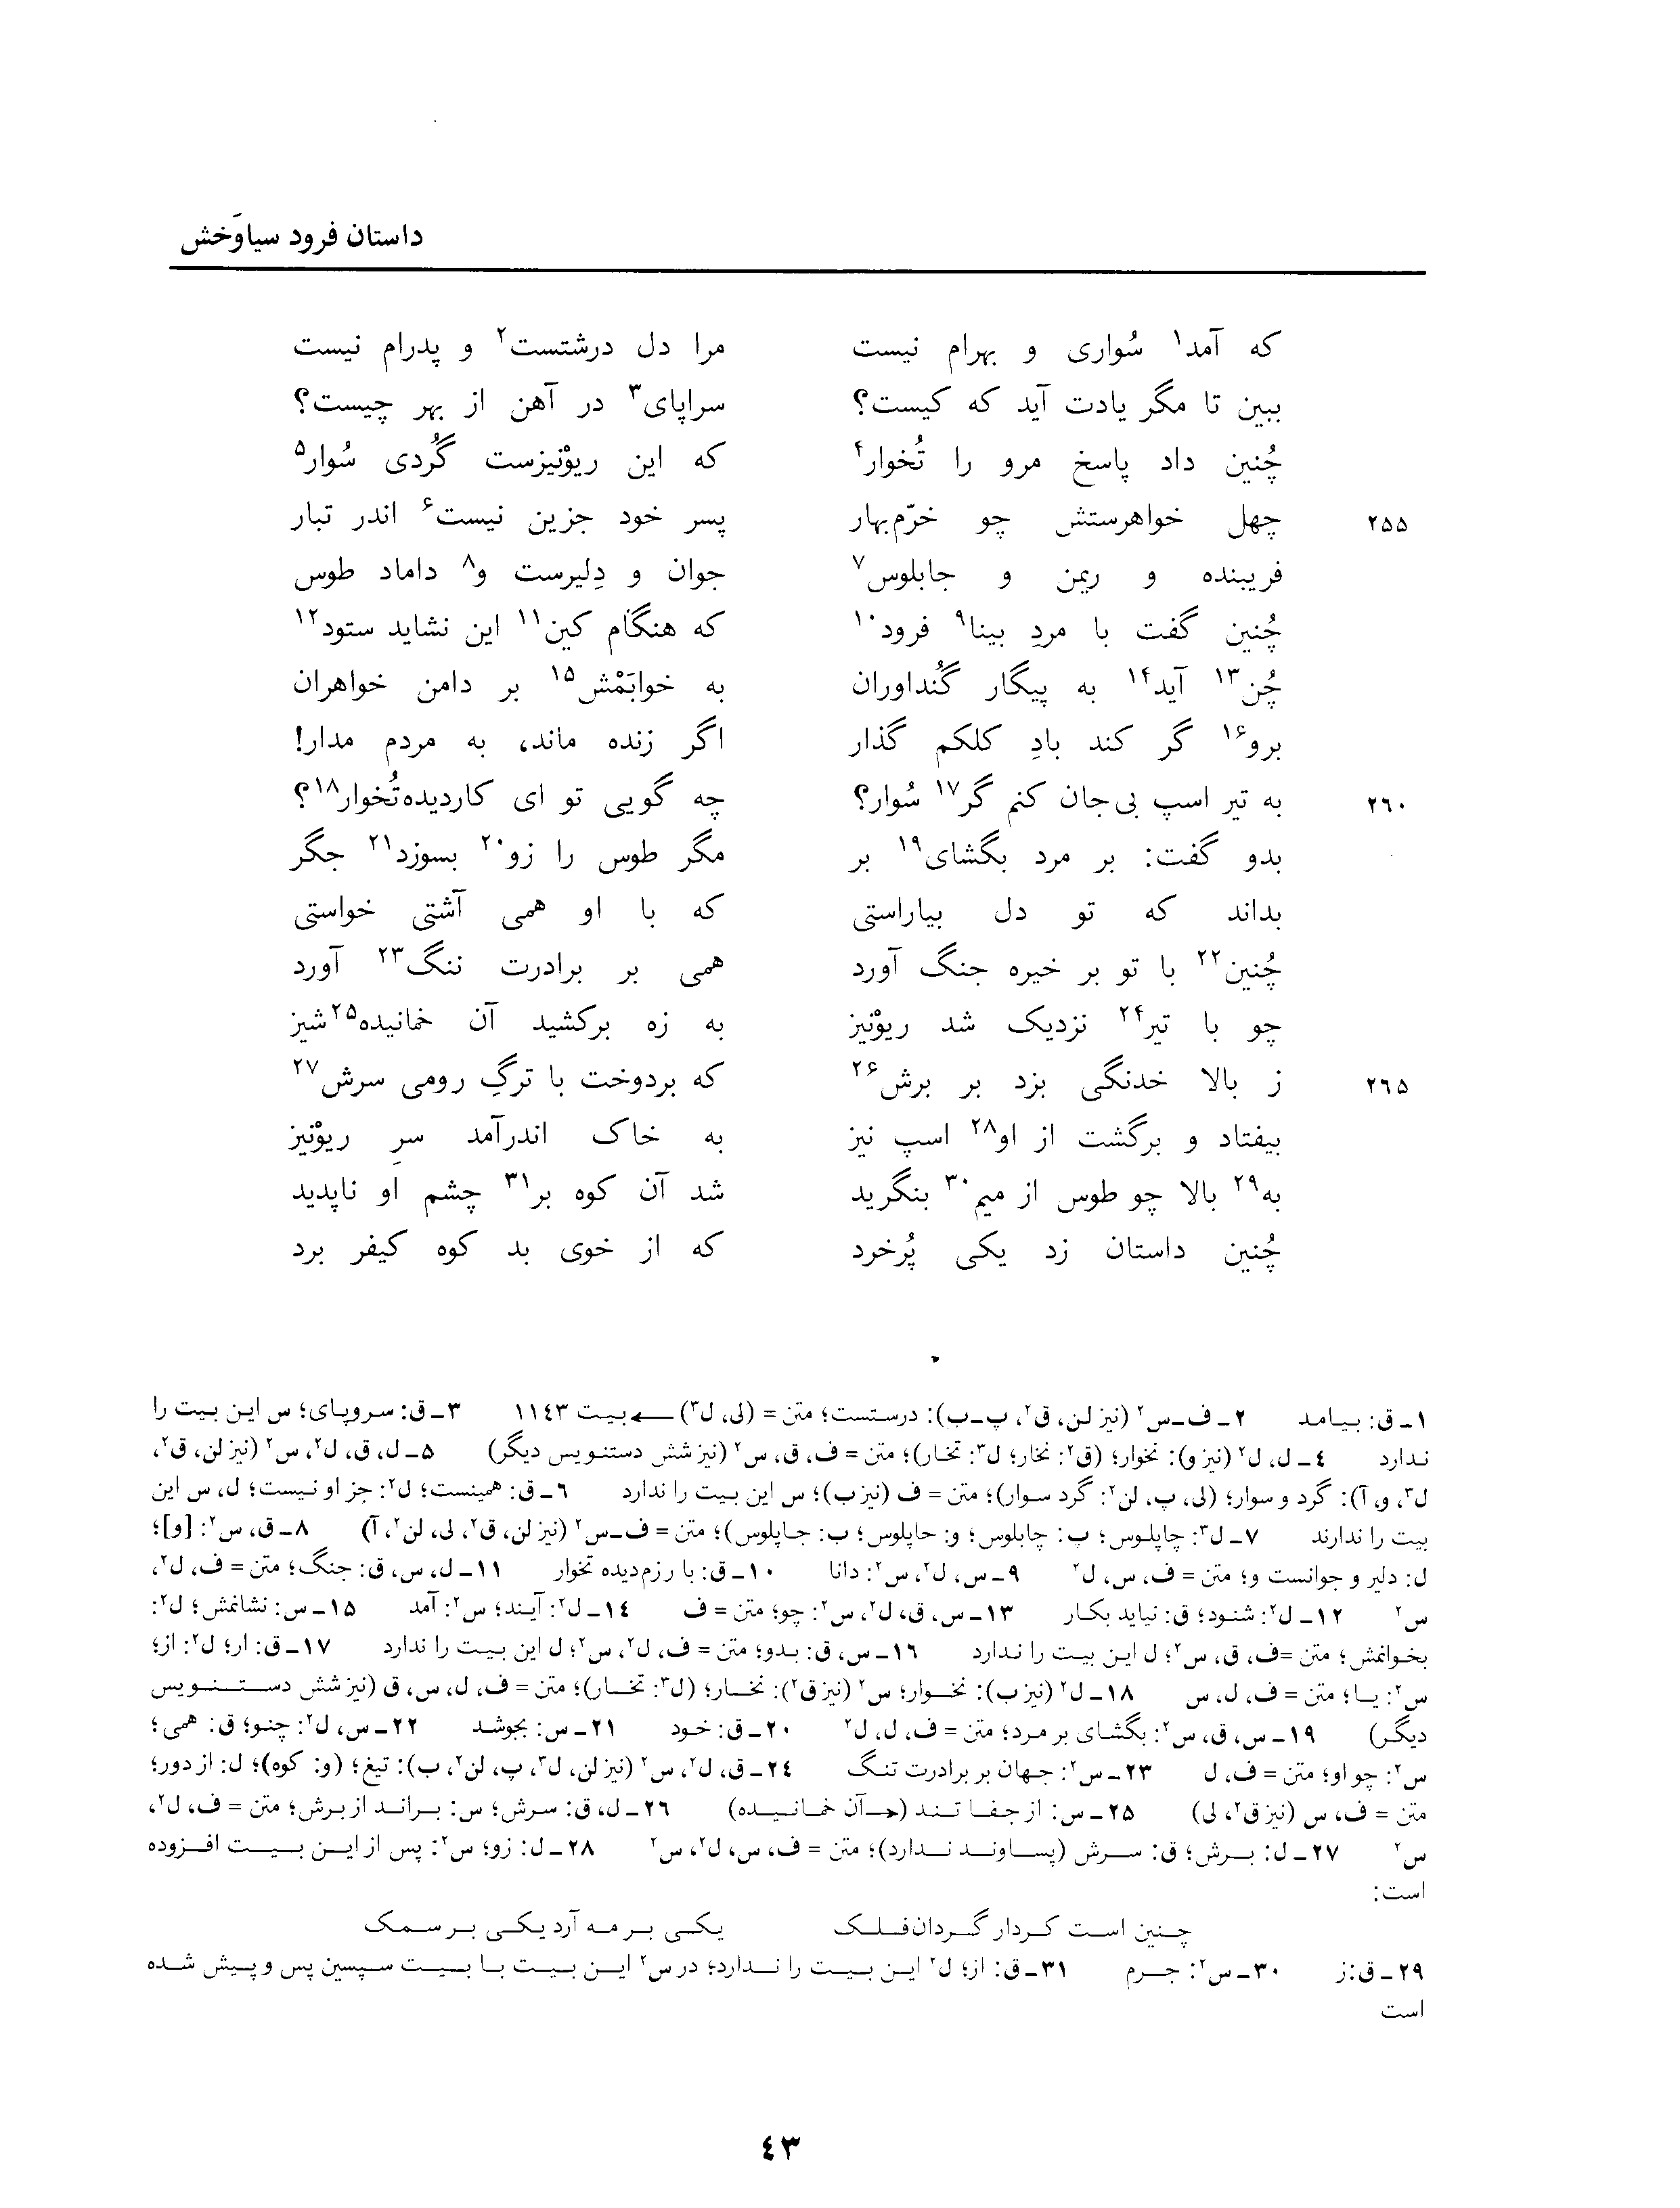 داستان فرود سیاوَخش
که آمد۱ سُواری و بهرام نیست مرا دل درشتست۲ و پدرام نیست
ببین تا مگر یادت آید که کیست؟ سراپای۳ در آهن از بهر چیست؟
چُنین داد پاسخ مرو را تُخوار۴ که این ریوْنیزست گُردی سُوار۵
۲۵۵ چهل خواهرستش چو خرّم‌بهار پسر خود جزین نیست۶ اندر تبار
فریبنده و ریمن و جابلوس۷ جوان و دِلیرست و۸ داماد طوس
چُنین گفت با مردِ بینا۹ فرود۱۰ که هنگام کین۱۱ این نشاید ستود۱۲
چُن۱۳ آید۱۴ به پیگار گُنداوران به خوابَمْش۱۵ بر دامن خواهران
برو۱۶ گر کند بادِ کلکم گذار اگر زنده ماند، به مردم مدار!
۲۶۰ به تیر اسپ بی‌جان کنم گر۱۷ سُوار؟ چه گویی تو ای کاردیده‌تُخوار۱۸؟
بدو گفت: بر مرد بگشای۱۹ بر مگر طوس را زو۲۰ بسوزد۲۱ جگر
بداند که تو دل بیاراستی که با او همی آشتی خواستی
چُنین۲۲ با تو بر خیره جنگ آورد همی بر برادرت ننگ۲۳ آورد
چو با تیر۲۴ نزدیک شد ریوْنیز به زه برکشید آن خمانیده۲۵ شیز
۲۶۵ ز بالا خدنگی بزد بر برش۲۶ که بردوخت با ترگِ رومی سرش۲۷
بیفتاد و برگشت از او۲۸ اسپ نیز به خاک اندرآمد سرِ ریوْنیز
به۲۹ بالا چو طوس از میم۳۰ بنگرید شد آن کوه بر۳۱ چشم او ناپدید
چُنین داستان زد یکی پُرخرد که از خوی بد کوه کیفر برد
۱ـ ق: بیامد ۲ـ ف ـ س۲ (نیز لن، ق۲، پ ـ ب): درستست؛ متن = (لی، ل۳) ← بیت ۱۱۴۳ ۳ـ ق: سروپای؛ س این بیت را
ندارد ۴ـ ل، ل۲ (نیز و): نخوار؛ (ق۲: نخار؛ ل۳: تخار)؛ متن = ف، ق، س۲ (نیز شش دستنویس دیگر) ۵ـ ل، ق، ل۲، س۲ (نیز لن، ق۲،
ل۳، و، آ): گرد و سوار؛ (لی، پ، لن۲: گرد سوار)؛ متن = ف (نیز ب)؛ س این بیت را ندارد ۶ـ ق: همینست؛ ل۲: جز او نیست؛ ل، س این
بیت را ندارند ۷ـ ل۳: چاپلوس؛ پ: چابلوس؛ و: حاپلوس؛ ب: جاپلوس)؛ متن = ف ـ س۲ (نیز لن، ق۲، لی، لن۲، آ) ۸ـ ق، س۲: [و]؛
ل: دلیر و جوانست و؛ متن = ف، س، ل۲ ۹ـ س، ل۲، س۲: دانا ۱۰ـ ق: با رزم‌دیده تخوار ۱۱ـ ل، س، ق: جنگ؛ متن = ف، ل۲،
س۲ ۱۲ـ ل۲: شنود؛ ق: نیاید بکار ۱۳ـ س، ق، ل۲، س۲: چو؛ متن = ف ۱۴ـ ل۲: آیند؛ س۲: آمد ۱۵ـ س: نشانمش؛ ل۲:
بخوانمش؛ متن = ف، ق، س۲؛ ل این بیت را ندارد ۱۶ـ س، ق: بدو؛ متن = ف، ل۲، س۲؛ ل این بیت را ندارد ۱۷ـ ق: ار؛ ل۲: از؛
س۲: یا؛ متن = ف، ل، س ۱۸ـ ل۲ (نیز ب): نخوار؛ س۲ (نیز ق۲): نخار؛ (ل۳: تخار)؛ متن = ف، ل، س، ق (نیز شش دستنویس
دیگر) ۱۹ـ س، ق، س۲: بگشای بر مرد؛ متن = ف، ل، ل۲ ۲۰ـ ق: خود ۲۱ـ س: بجوشد ۲۲ـ س، ل۲: چنو؛ ق: همی؛
س۲: چو او؛ متن = ف، ل ۲۳ـ س۲: جهان بر برادرت تنگ ۲۴ـ ق، ل۲، س۲ (نیز لن، ل۳، پ، لن۲، ب): تیغ؛ (و: کوه)؛ ل: از دور؛
متن = ف، س (نیز ق۲، لی) ۲۵ـ س: از جفا تند (← آن خمانیده) ۲۶ـ ل، ق: سرش؛ س: براند از برش؛ متن = ف، ل۲،
س۲ ۲۷ـ ل: برش؛ ق: سرش (پساوند ندارد)؛ متن = ف، س، ل۲، س۲ ۲۸ـ ل: زو؛ س۲: پس از این بیت افزوده
است:
چنین است کردار گردان‌فلک یکی بر مه آرد یکی بر سمک
۲۹ـ ق: ز ۳۰ـ س۲: جرم ۳۱ـ ق: از؛ ل۲ این بیت را ندارد؛ در س۲ این بیت با بیت سپسین پس و پیش شده
است
۴۳